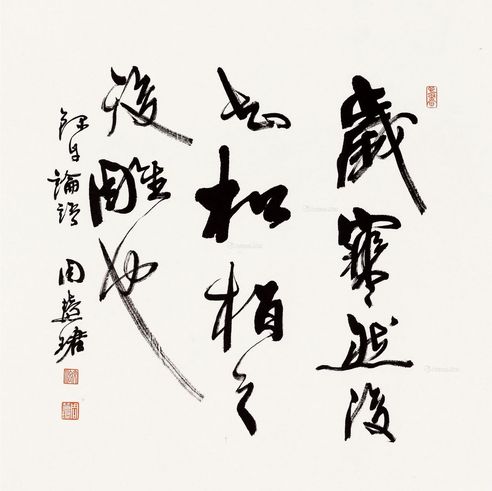 歲寒然後
知松柏之
後雕也
錄自論語
周慧珺